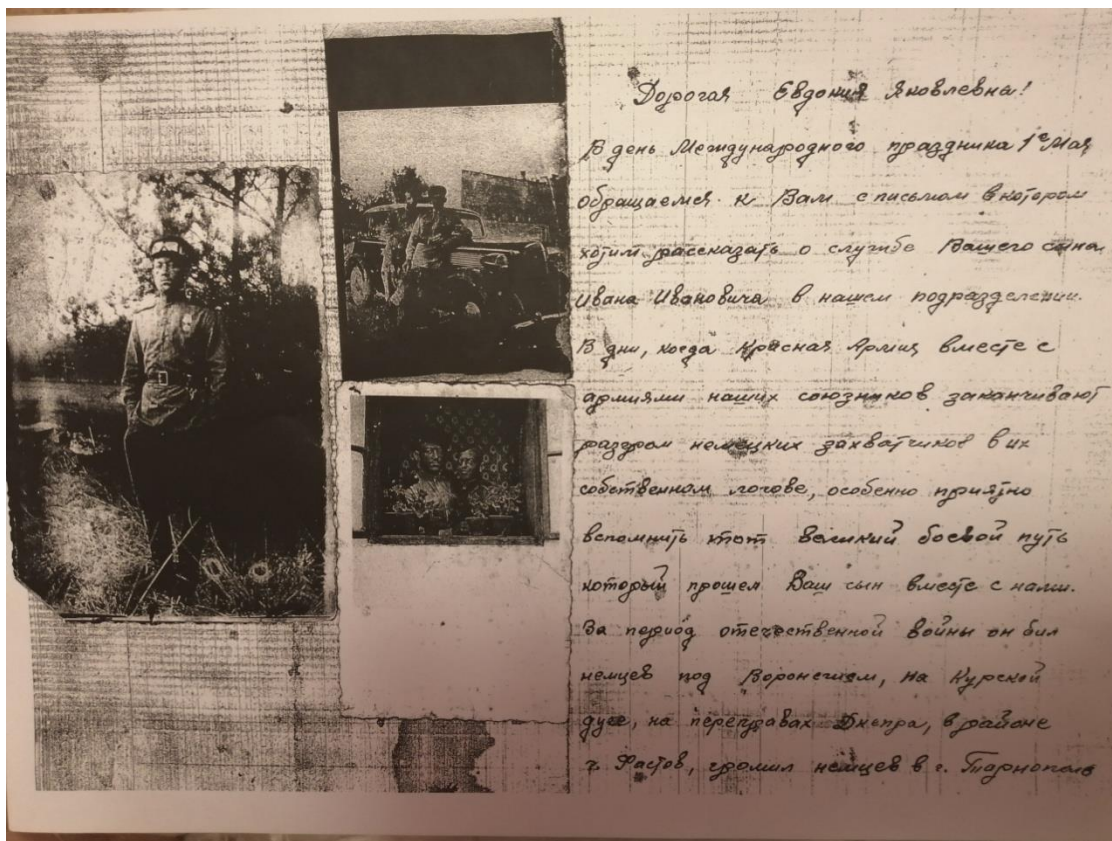 Дорогая Евдокия Яковлевна!
В день Международного праздника 1е Мая
обращаемся к Вам с письмом в котором
хотим рассказать о службе Вашего сына
Ивана Ивановича в нашем подразделении.
В дни, когда Красная Армия вместе с
армиями наших союзников заканчивают
разгром немецких захватчиков в их
собственном логове, особенно приятно
вспомнить тот великий боевой путь
который прошел Ваш сын вместе с нами.
За период отечественной войны он бил
немцев под Воронежем, на Курской
дуге, на переправах Днепра, в районе
г. Фастов, громил немцев в г. Тарнополь